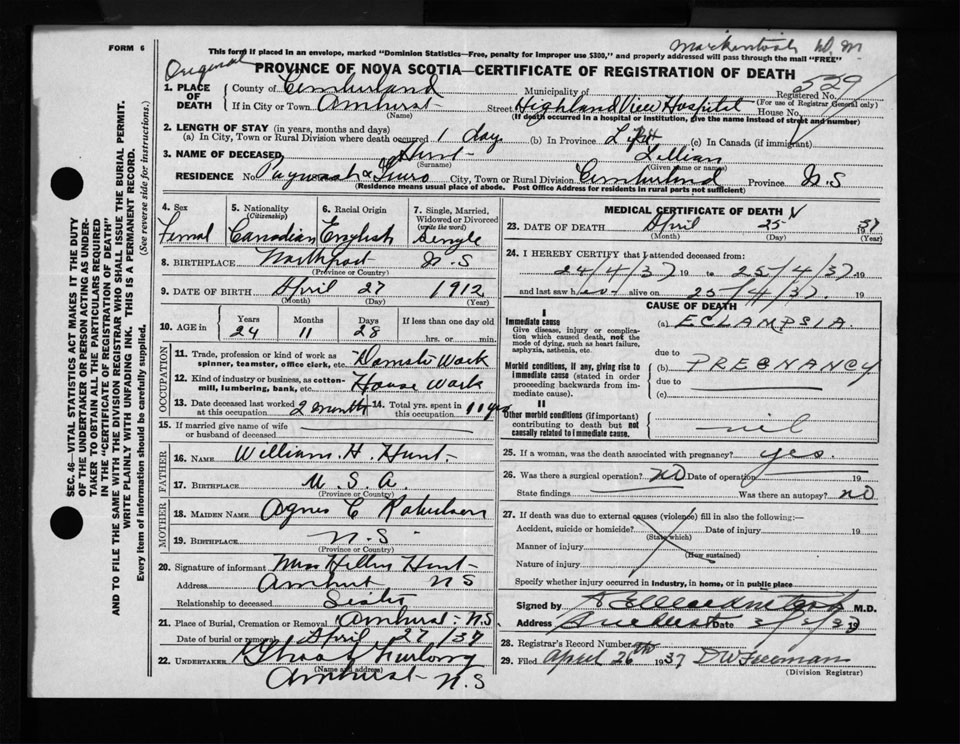 FORM 6
This form if placed in an envelope, marked "Dominion Statistics—Free, penalty for improper use $300," and properly addressed will pass through the mail "FREE"
Original
PROVINCE OF NOVA SCOTIA—CERTIFICATE OF REGISTRATION OF DEATH
529
1. PLACE OF DEATH County of Cumberland Municipality of Registered No. (For use of Registrar General only)
If in City or Town Amherst (Name) Street Highland View Hospital House No.
(If death occurred in a hospital or institution, give the name instead of street and number)
2. LENGTH OF STAY (in years, months and days)
(a) In City, Town or Rural Division where death occurred 1 day (b) In Province Life (c) In Canada (if immigrant)
3. NAME OF DECEASED Hunt (Surname) Lillian (Given name or names)
RESIDENCE No. City, Town or Rural Division Cumberland Province N.S
(Residence means usual place of abode. Post Office Address for residents in rural parts not sufficient)
4. Sex Femal
5. Nationality (Citizenship) Canadian
6. Racial Origin English
7. Single, Married, Widowed or Divorced (write the word) Single
8. BIRTHPLACE Northport N.S
(Province or Country)
9. DATE OF BIRTH April 27 1912
(Month) (Day) (Year)
10. AGE in Years 24 Months 11 Days 28 If less than one day old hrs. or min.
OCCUPATION
11. Trade, profession or kind of work as spinner, teamster, office clerk, etc. Domestic Work
12. Kind of industry or business, as cotton-mill, lumbering, bank, etc. House Work
13. Date deceased last worked at this occupation 2 months 14. Total yrs. spent in this occupation 10 yrs
15. If married give name of wife or husband of deceased
FATHER
16. NAME William. H. Hunt
17. BIRTHPLACE U.S.A.
(Province or Country)
MOTHER
18. MAIDEN NAME Agnes C Robertson
19. BIRTHPLACE N.S
(Province or Country)
20. Signature of informant Hunt
Address Amherst NS
Relationship to deceased Sister
21. Place of Burial, Cremation or Removal Amherst N.S
Date of burial or removal April 27/37
22. UNDERTAKER
(Name and address)
Amherst N.S
MEDICAL CERTIFICATE OF DEATH
23. DATE OF DEATH April 25 1937
(Month) (Day) (Year)
24. I HEREBY CERTIFY that I attended deceased from:
24/4/37 19 to 25/4/37. 19
and last saw her alive on 25/4/37. 19
CAUSE OF DEATH
I
Immediate cause
Give disease, injury or complication which caused death, not the mode of dying, such as heart failure, asphyxia, asthenia, etc.
(a) ECLAMPSIA.
due to
Morbid conditions, if any, giving rise to immediate cause (stated in order proceeding backwards from immediate cause).
(b) PREGNANCY
due to
(c)
II
Other morbid conditions (if important) contributing to death but not causally related to immediate cause.
nil
25. If a woman, was the death associated with pregnancy? yes.
26. Was there a surgical operation? NO Date of operation 19
State findings Was there an autopsy? NO
27. If death was due to external causes (violence) fill in also the following:—
Accident, suicide or homicide? Date of injury 19
(State which)
Manner of injury
(How sustained)
Nature of injury
Specify whether injury occurred in industry, in home, or in public place
Signed by M.D.
Address Amherst Date
28. Registrar's Record Number
29. Filed April 26th 1937 D W Freeman
(Division Registrar)
SEC. 46—VITAL STATISTICS ACT MAKES IT THE DUTY
OF THE UNDERTAKER OR PERSON ACTING AS UNDER-
TAKER TO OBTAIN ALL THE PARTICULARS REQUIRED
IN THE "CERTIFICATE OF REGISTRATION OF DEATH"
AND TO FILE THE SAME WITH THE DIVISION REGISTRAR WHO SHALL ISSUE THE BURIAL PERMIT.
WRITE PLAINLY WITH UNFADING INK. THIS IS A PERMANENT RECORD.
Every item of information should be carefully supplied. (See reverse side for instructions.)